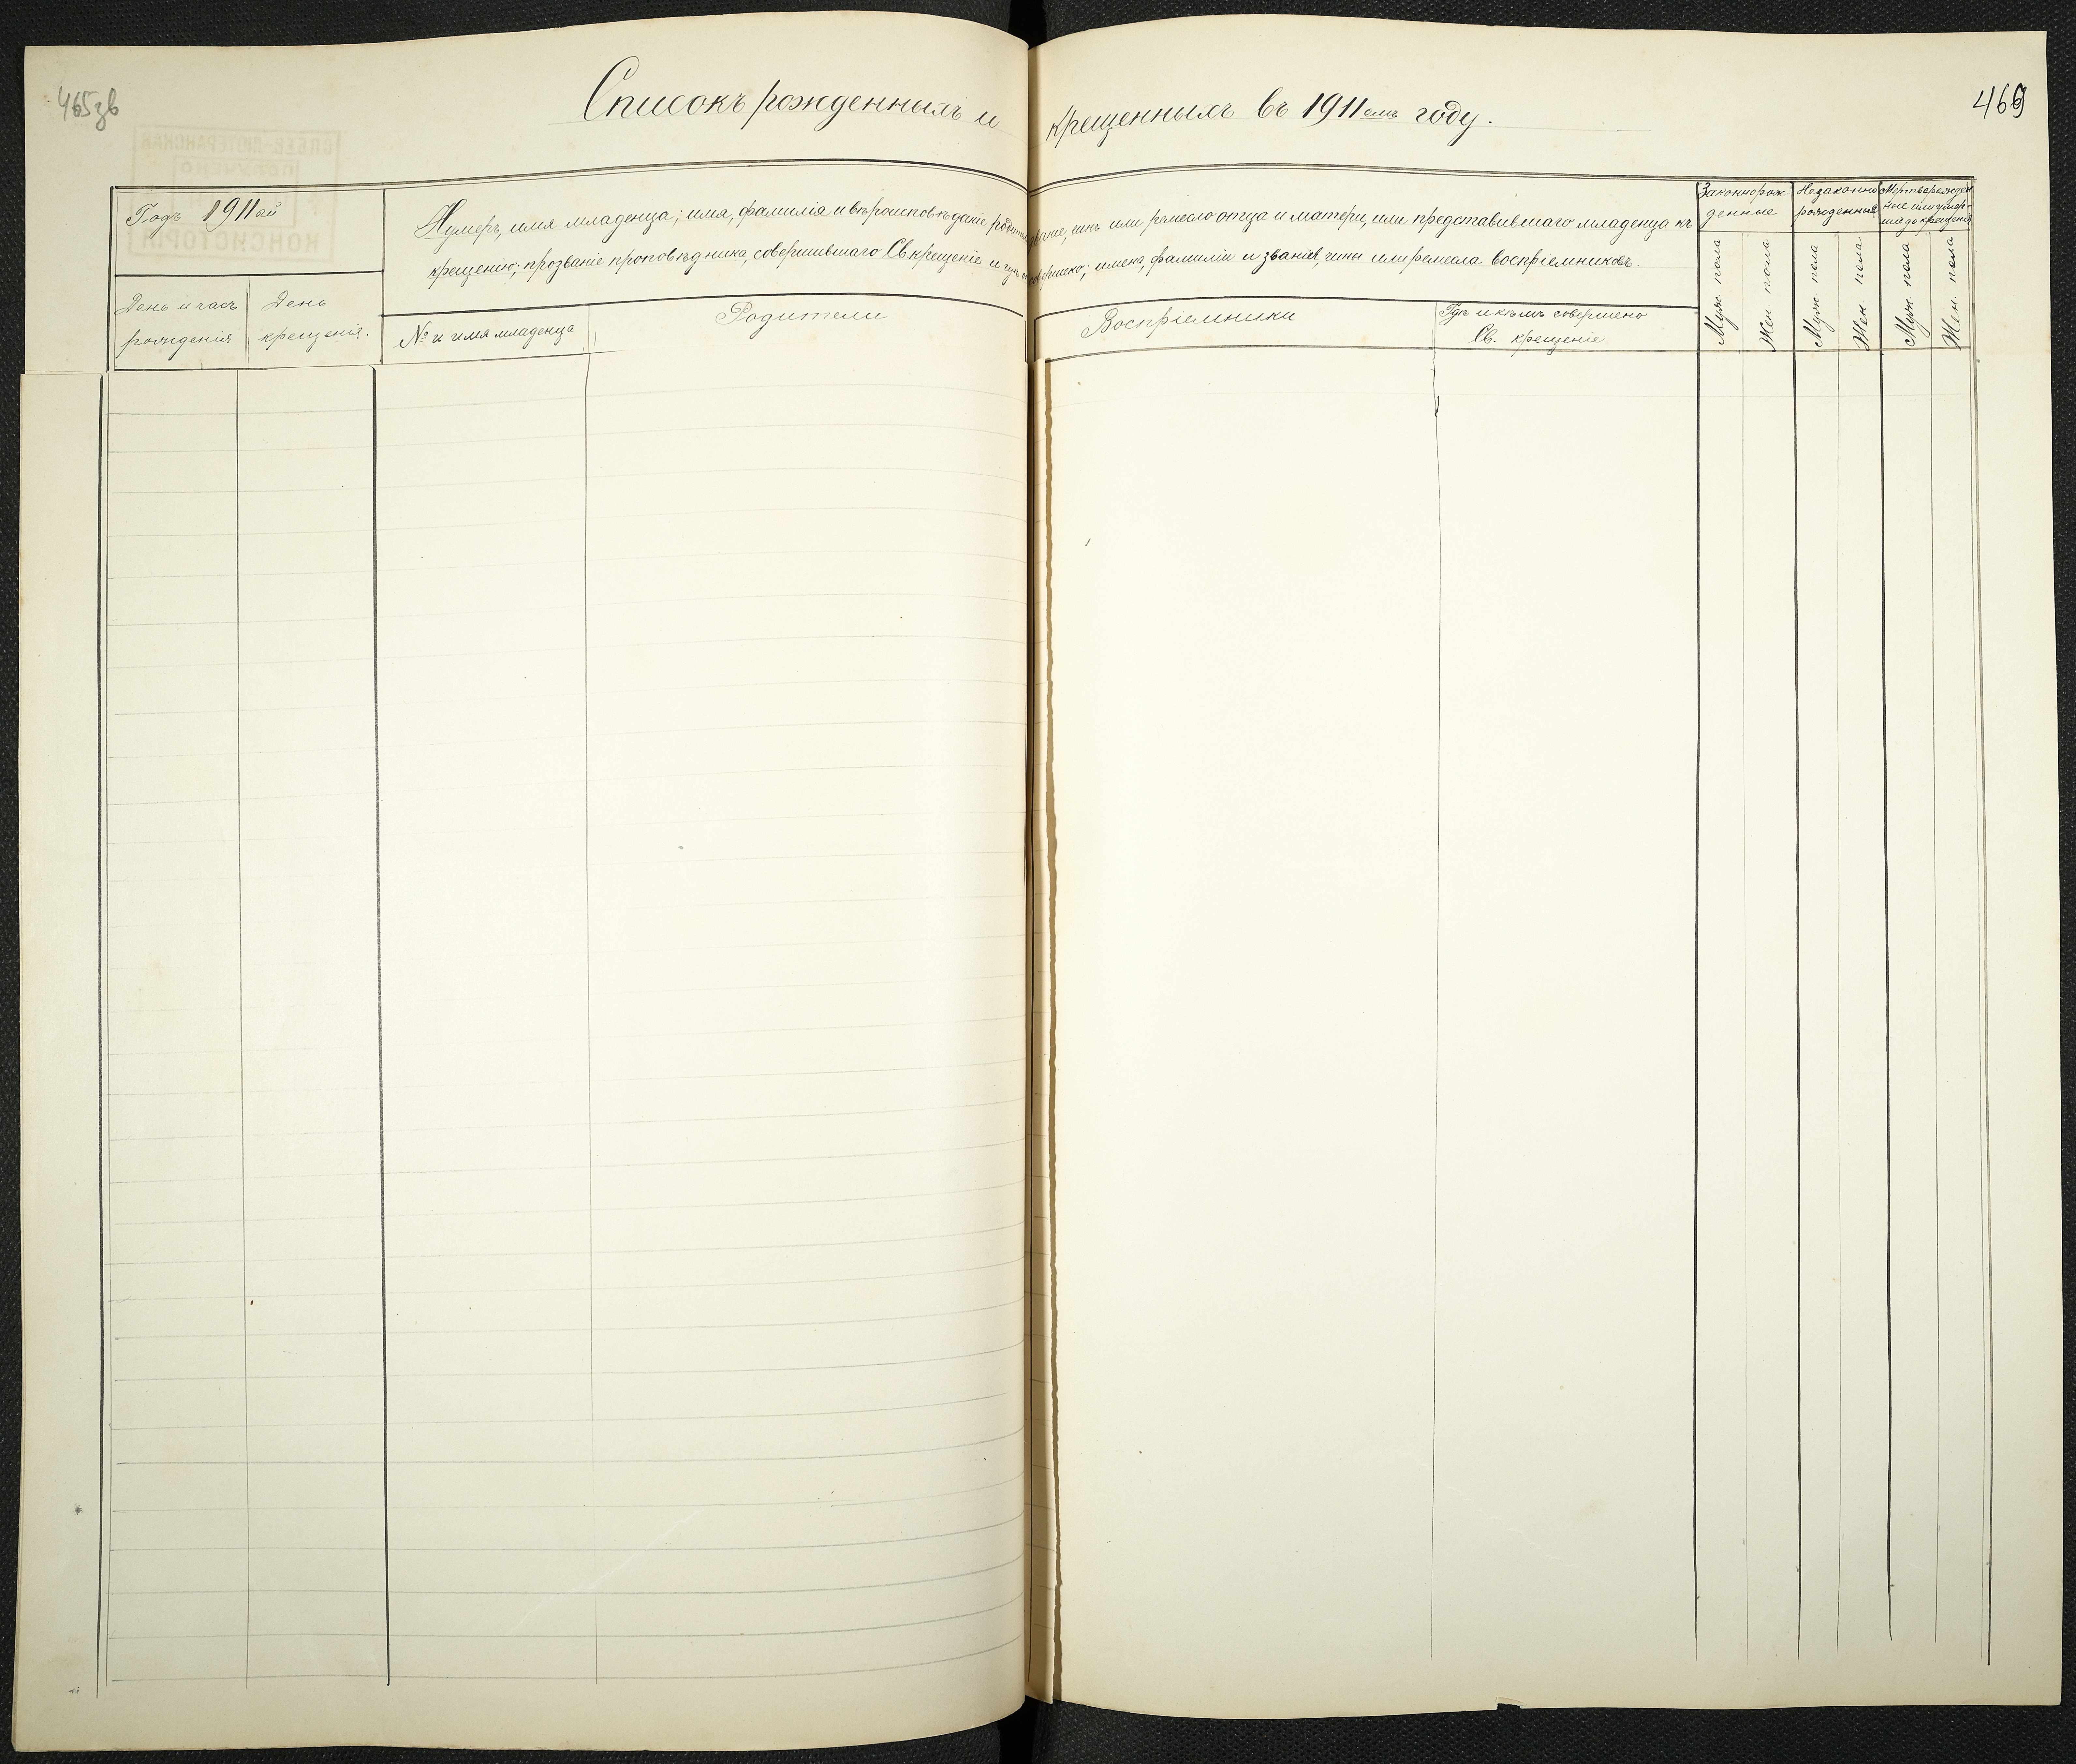 465зв
Списокъ рожденныхъ и крещенныхъ въ 1911омъ году.
469
Годъ 1911ый
Нумеръ, имя младенца; имя, фамилія и вѣроисповѣданіе родит званіе, чинъ или ремесло отца и матери, или представившаго младенца къ
крещенію; прозваніе проповѣдника, совершившаго Св крещеніе и гдѣ имена, фамиліи и званія, чины или ремесла воспріемниковъ.
День и часъ
рожденія
День
крещенія.
№ и имя младенца
Родители
Воспріемники
Гдѣ и кѣмъ совершено
Св. крещеніе
Законнорож-
денные
Незаконно
рожденные
Мертворожден
ные или умер-
шія до крещенія
Муж. пола
Жен пола
Муж пола
Жен пола
Муж. пола
Жен. пола
КОНСИСТОРІЯ